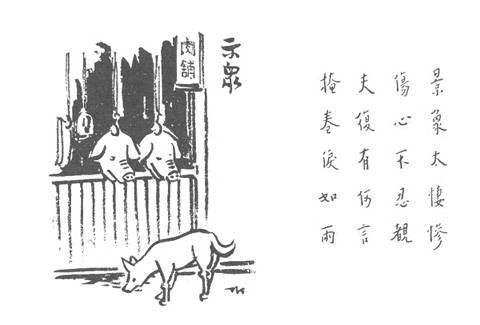 景象太悽慘
傷心不忍覩
夫復有何言
掩卷淚如雨
示眾
肉舖
TK